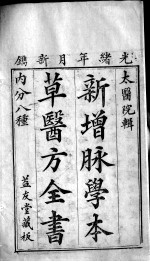 光緒年月新鐫
太醫院輯
新增脉學本
草醫方全書
內分八種
益友堂藏板